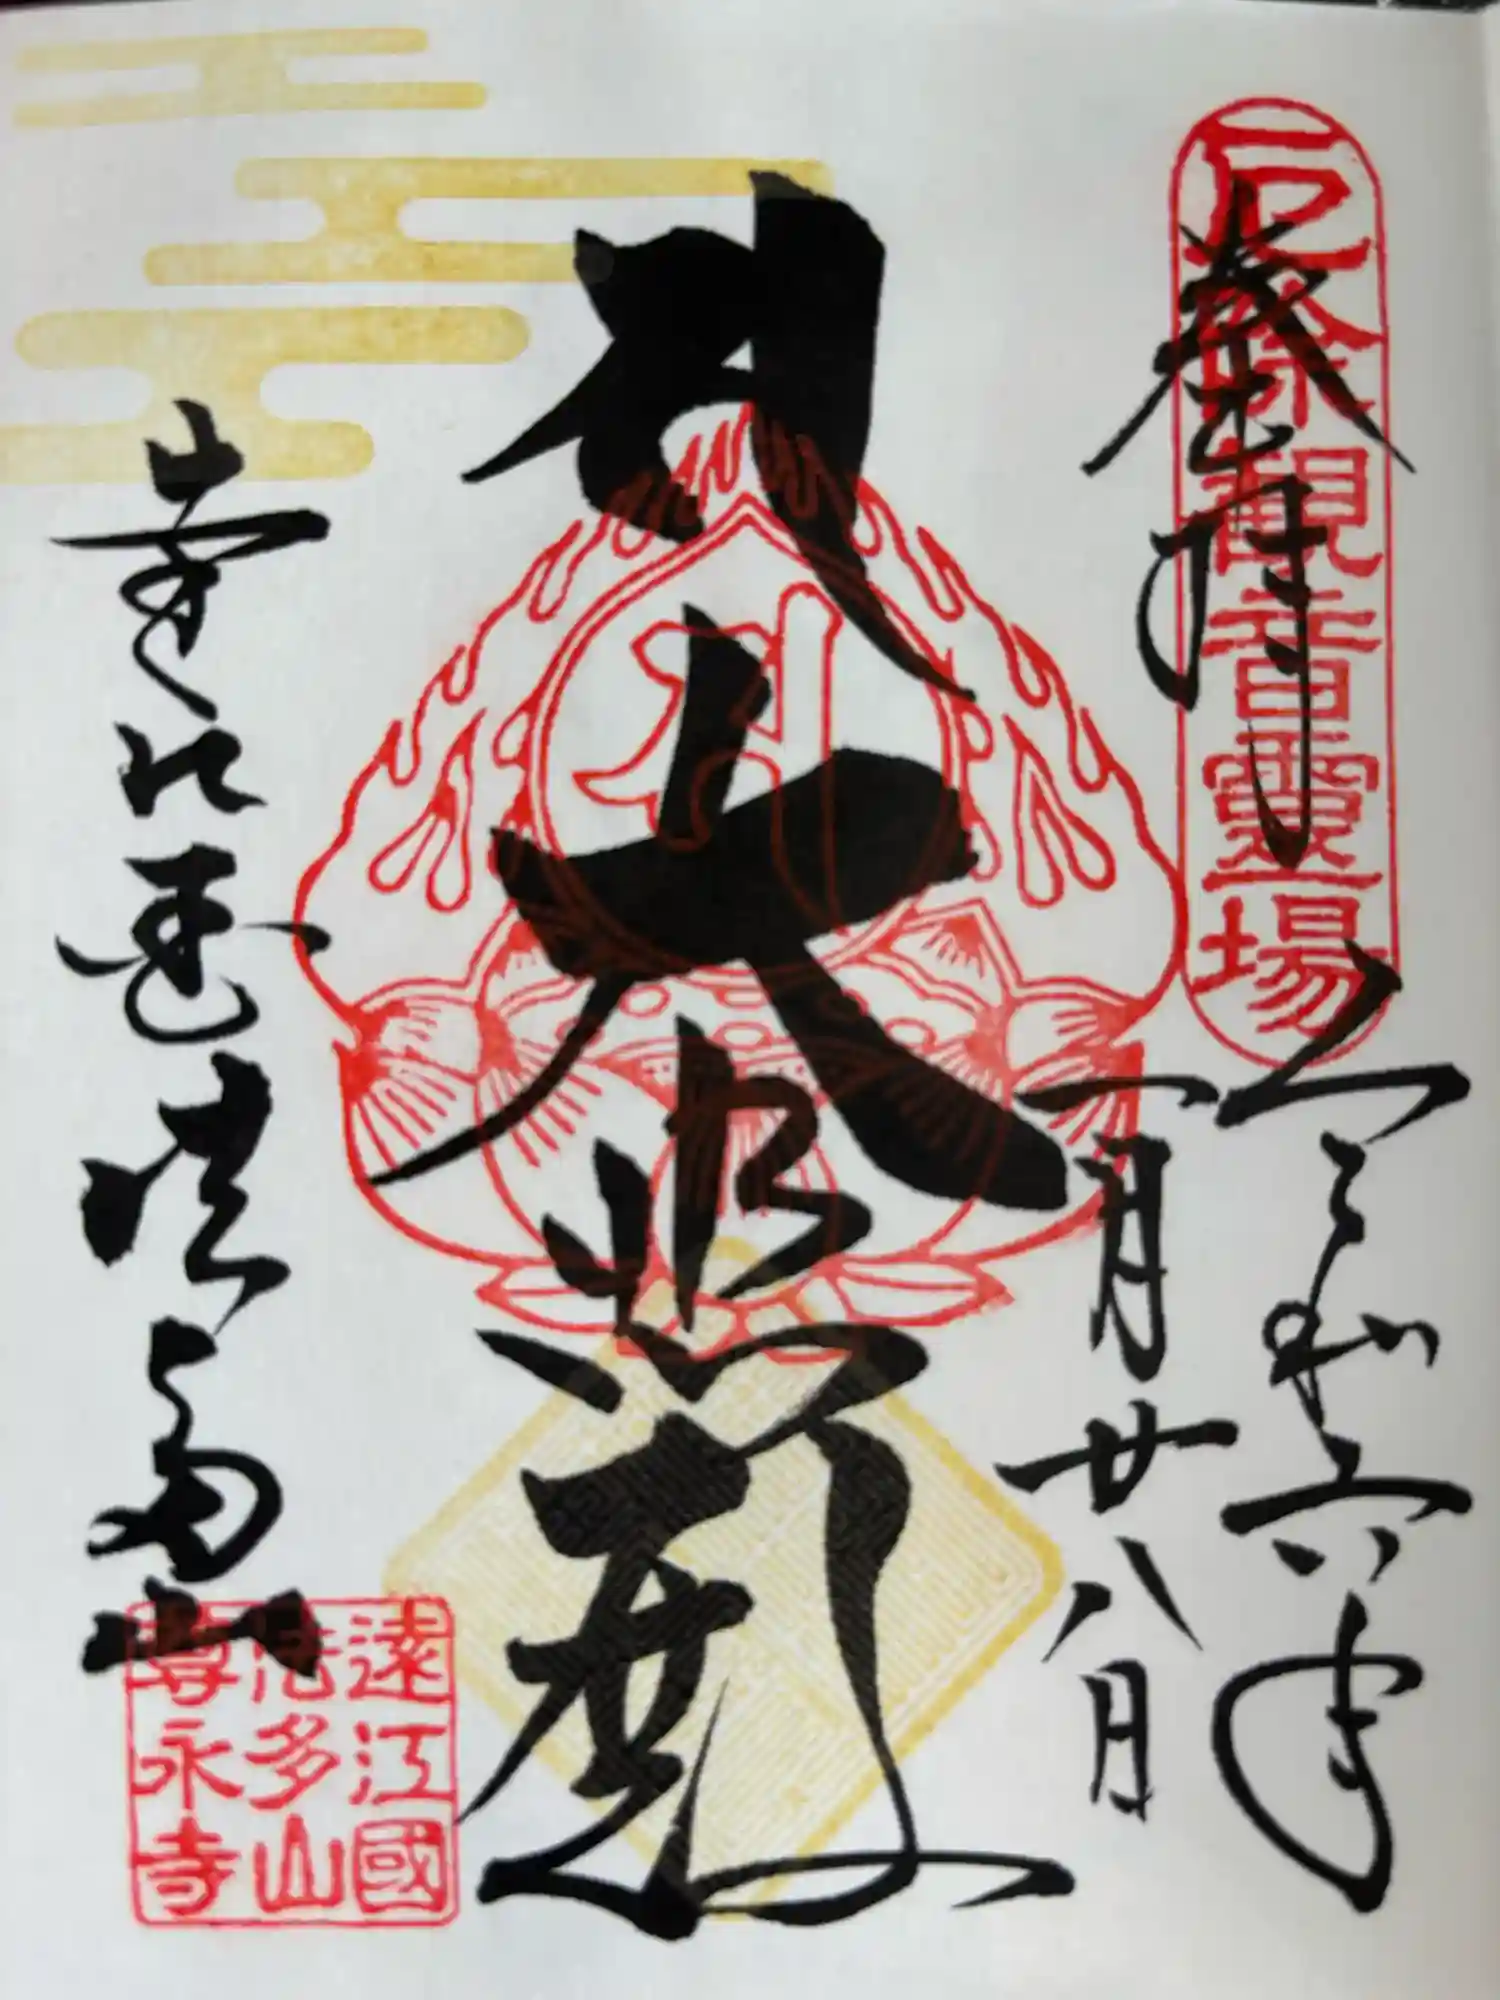 厄除観音霊場
奉拝
令和六年
一月廿八日
大悲
遠江国法多山
遠江國
法多山
尊永寺